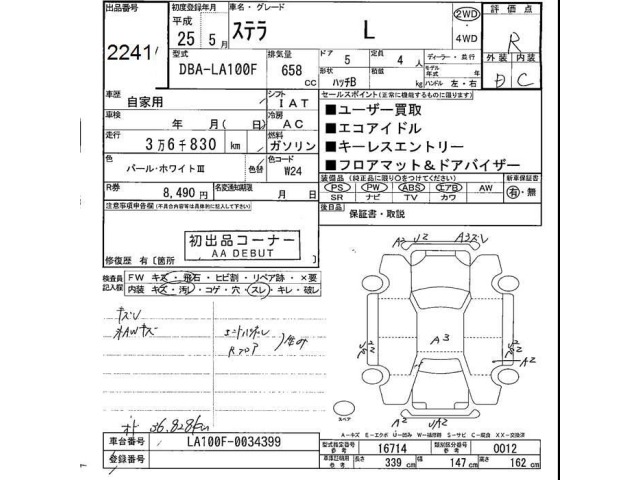 出品番号 初度登録年月 車名・グレード 評価点
2241 平成 25年 5月 ステラ L 2WD 4WD R
型式 排気量 ドア 定員 ディーラー・並行 外装 内装
DBA-LA100F 658 cc 5 4人 モデル年式 年式 D C
形状 ハッチB 積載 kg ハンドル 左・右
車歴 自家用 シフト IAT セールスポイント(正常に機能するものに限ります)
車検 年 月(日) 冷房 AC ■ユーザー買取
走行 3万6千830 km 燃料 ガソリン ■エコアイドル
■キーレスエントリー
色 パール・ホワイトⅢ 色替 色コード W24 ■フロアマット&ドアバイザー
R券 8,490円 名変通知期限 月 日 装備品(純正品に限り○をつけてください) 新車保証書
PS PW ABS エアB AW 有・無
SR ナビ TV カワ
注意事項申告欄(不具合内容等は具体的に記入して下さい) 後日品 保証書・取説
初出品コーナー
AA DEBUT
修復歴 有〔箇所 〕
検査員記入欄 FW キズ・飛石・ヒビ割・リペア跡・×要
内装 キズ・汚レ・コゲ・穴・スレ・キレ・破レ
A2 U2 A3ズレ
キズレ
AWキズ
A3
U2
A2
スペア
A2 UA2
36,828km
A-キズ E-エクボ U-凹み W-補修跡 S-サビ C-腐蝕 XX-交換済
車台番号 LA100F-0034399 型式指定番号 参考 16714 類別区分番号 参考 0012
登録番号 車庫証明用 参考 長さ 339 cm 幅 147 cm 高さ 162 cm